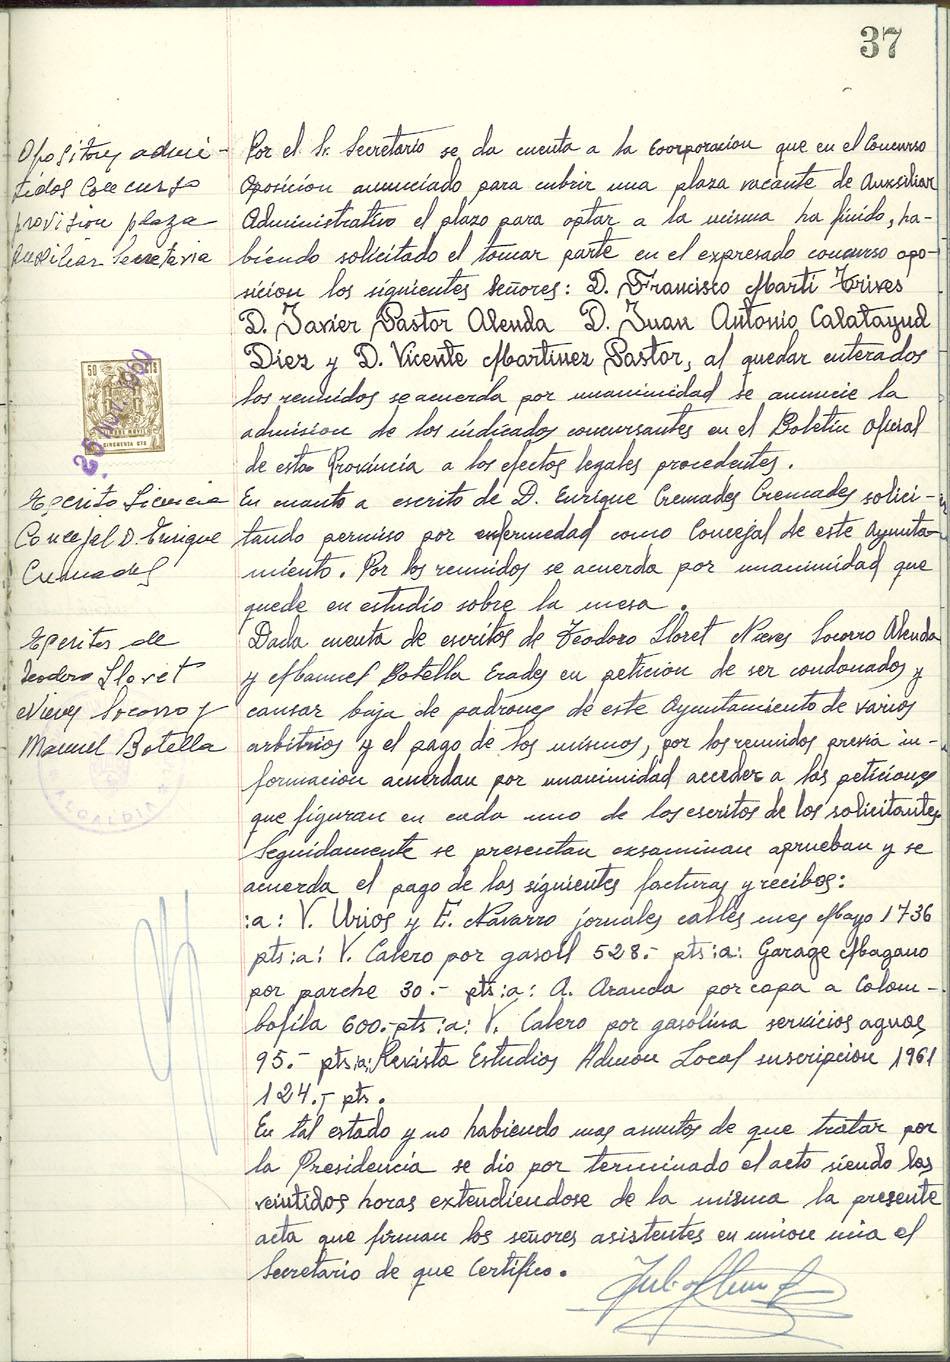 37
Opositores admi-
tidos Concurso
provision plaza
Auxiliar Secretaria
Por el Sr. Secretario se da cuenta a la Coorporacion que en el Concurso
Oposicion anunciado para cubrir una plaza vacante de Auxiliar
Administrativo el plazo para optar a la misma ha finido, ha-
biendo solicitado el tomar parte en el expresado concurso opo-
sicion los siguientes Señores: D. Francisco Marti Trives
D. Javier Pastor Alenda D. Juan Antonio Calatayud
Diez y D. Vicente Martinez Pastor, al quedar enterados
los reunidos se acuerda por unanimidad se anuncie la
admision de los indicados concursantes en el Boletin Oficial
de esta Provincia a los efectos legales procedentes.
50 CTS
25 NOV. 1960
CINCUENTA CTS
Escrito Licencia
Concejal D. Enrique
Cremades
En cuanto a escrito de D. Enrique Cremades Cremades solici-
tando permiso por enfermedad como Concejal de este Ayunta-
miento. Por los reunidos se acuerda por unanimidad que
quede en estudio sobre la mesa.
Escritos de
Teodoro Lloret
Nieves Socorro y
Manuel Botella
ALCALDIA
Dada cuenta de escritos de Teodoro Lloret Nieves Socorro Alenda
y Manuel Botella Erades en peticion de ser condonados y
causar baja de padrones de este Ayuntamiento de varios
arbitrios y el pago de los mismos, por los reunidos previa in-
formacion acuerdan por unanimidad acceder a las peticiones
que figuran en cada uno de los escritos de los solicitantes
Seguidamente se presentan exsaminan aprueban y se
acuerda el pago de las siguientes facturas y recibos:
:a: V. Urios y E. Navarro jornales calles mes Mayo 1736
pts :a: V. Calero por gasoil 528.- pts :a: Garage Magano
por parche 30.- pts :a: A. Aranda por copa a Colom-
bofila 600.- pts :a: V. Calero por gasolina servicios aguas
95.- pts :a: Revista Estudios Admon Local suscripcion 1961
124.- pts.
En tal estado y no habiendo mas asuntos de que tratar por
la Presidencia se dio por terminado el acto siendo las
veintidos horas extendiendose de la misma la presente
acta que firman los señores asistentes en union mia el
Secretario de que Certifico.